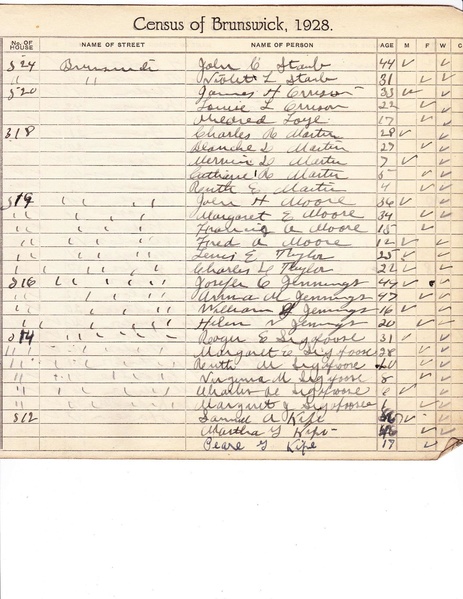 Census of Brunswick, 1928.
No. OF HOUSE NAME OF STREET NAME OF PERSON AGE M F W C
524 John C Staub 44 ✓ ✓
" " Violet L Staub 31 ✓ ✓
520 James H 33 ✓ ✓
Louise L 22 ✓ ✓
Mildred 17 ✓ ✓
318 Charles R Martin 28 ✓ ✓
Blanche D Martin 27 ✓ ✓
D Martin 7 ✓ ✓
Martin ✓ ✓
Ruth E Martin 4 ✓ ✓
519 " " " John H Moore 36 ✓ ✓
" " " " Margaret E Moore 34 ✓ ✓
" " " " A Moore 15 ✓ ✓
" " " " Fred A Moore 12 ✓ ✓
" " " " Lewis E Taylor 25 ✓ ✓
" " " " Charles Taylor 22 ✓ ✓
516 " " " " Joseph C Jennings 49 ✓ ✓
" " " " Anna M Jennings 47 ✓ ✓
" " " " William Jennings 16 ✓ ✓
" " " " Helen V Jennings 20 ✓ ✓
514 " " " " Roger E Sigafoose 31 ✓ ✓
" " " " Margaret Sigafoose 28 ✓ ✓
" " " " Ruth M Sigafoose 10 ✓ ✓
" " " " Virginia M Sigafoose 8 ✓ ✓
" " " " Charles Sigafoose ✓ ✓
" " " " Margaret Sigafoose ✓ ✓
512 Samuel A Kipe ✓ ✓
Martha Y Kipe ✓ ✓
Pearl Y Kipe 17 ✓